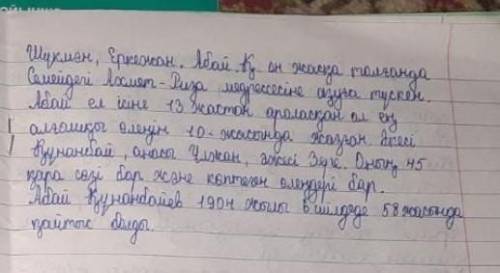 Шукман, Еркежан. Абай Қ он жасқа толғанда
Семейдегі Ахмет-Риза медресесіне оқуға түскен.
Абай ел ісіне 13 жастан араласқан ол ең
алғашқы өлеңін 10-жасында жазған әкесі
Құнанбай, анасы Ұлжан, әжесі Зере. Оның 45
қара сөзі бар және көптеген өлеңдері бар.
Абай Құнанбайев 1904 жылы 6 шілдеде 58 жасында
қайтыс болды.